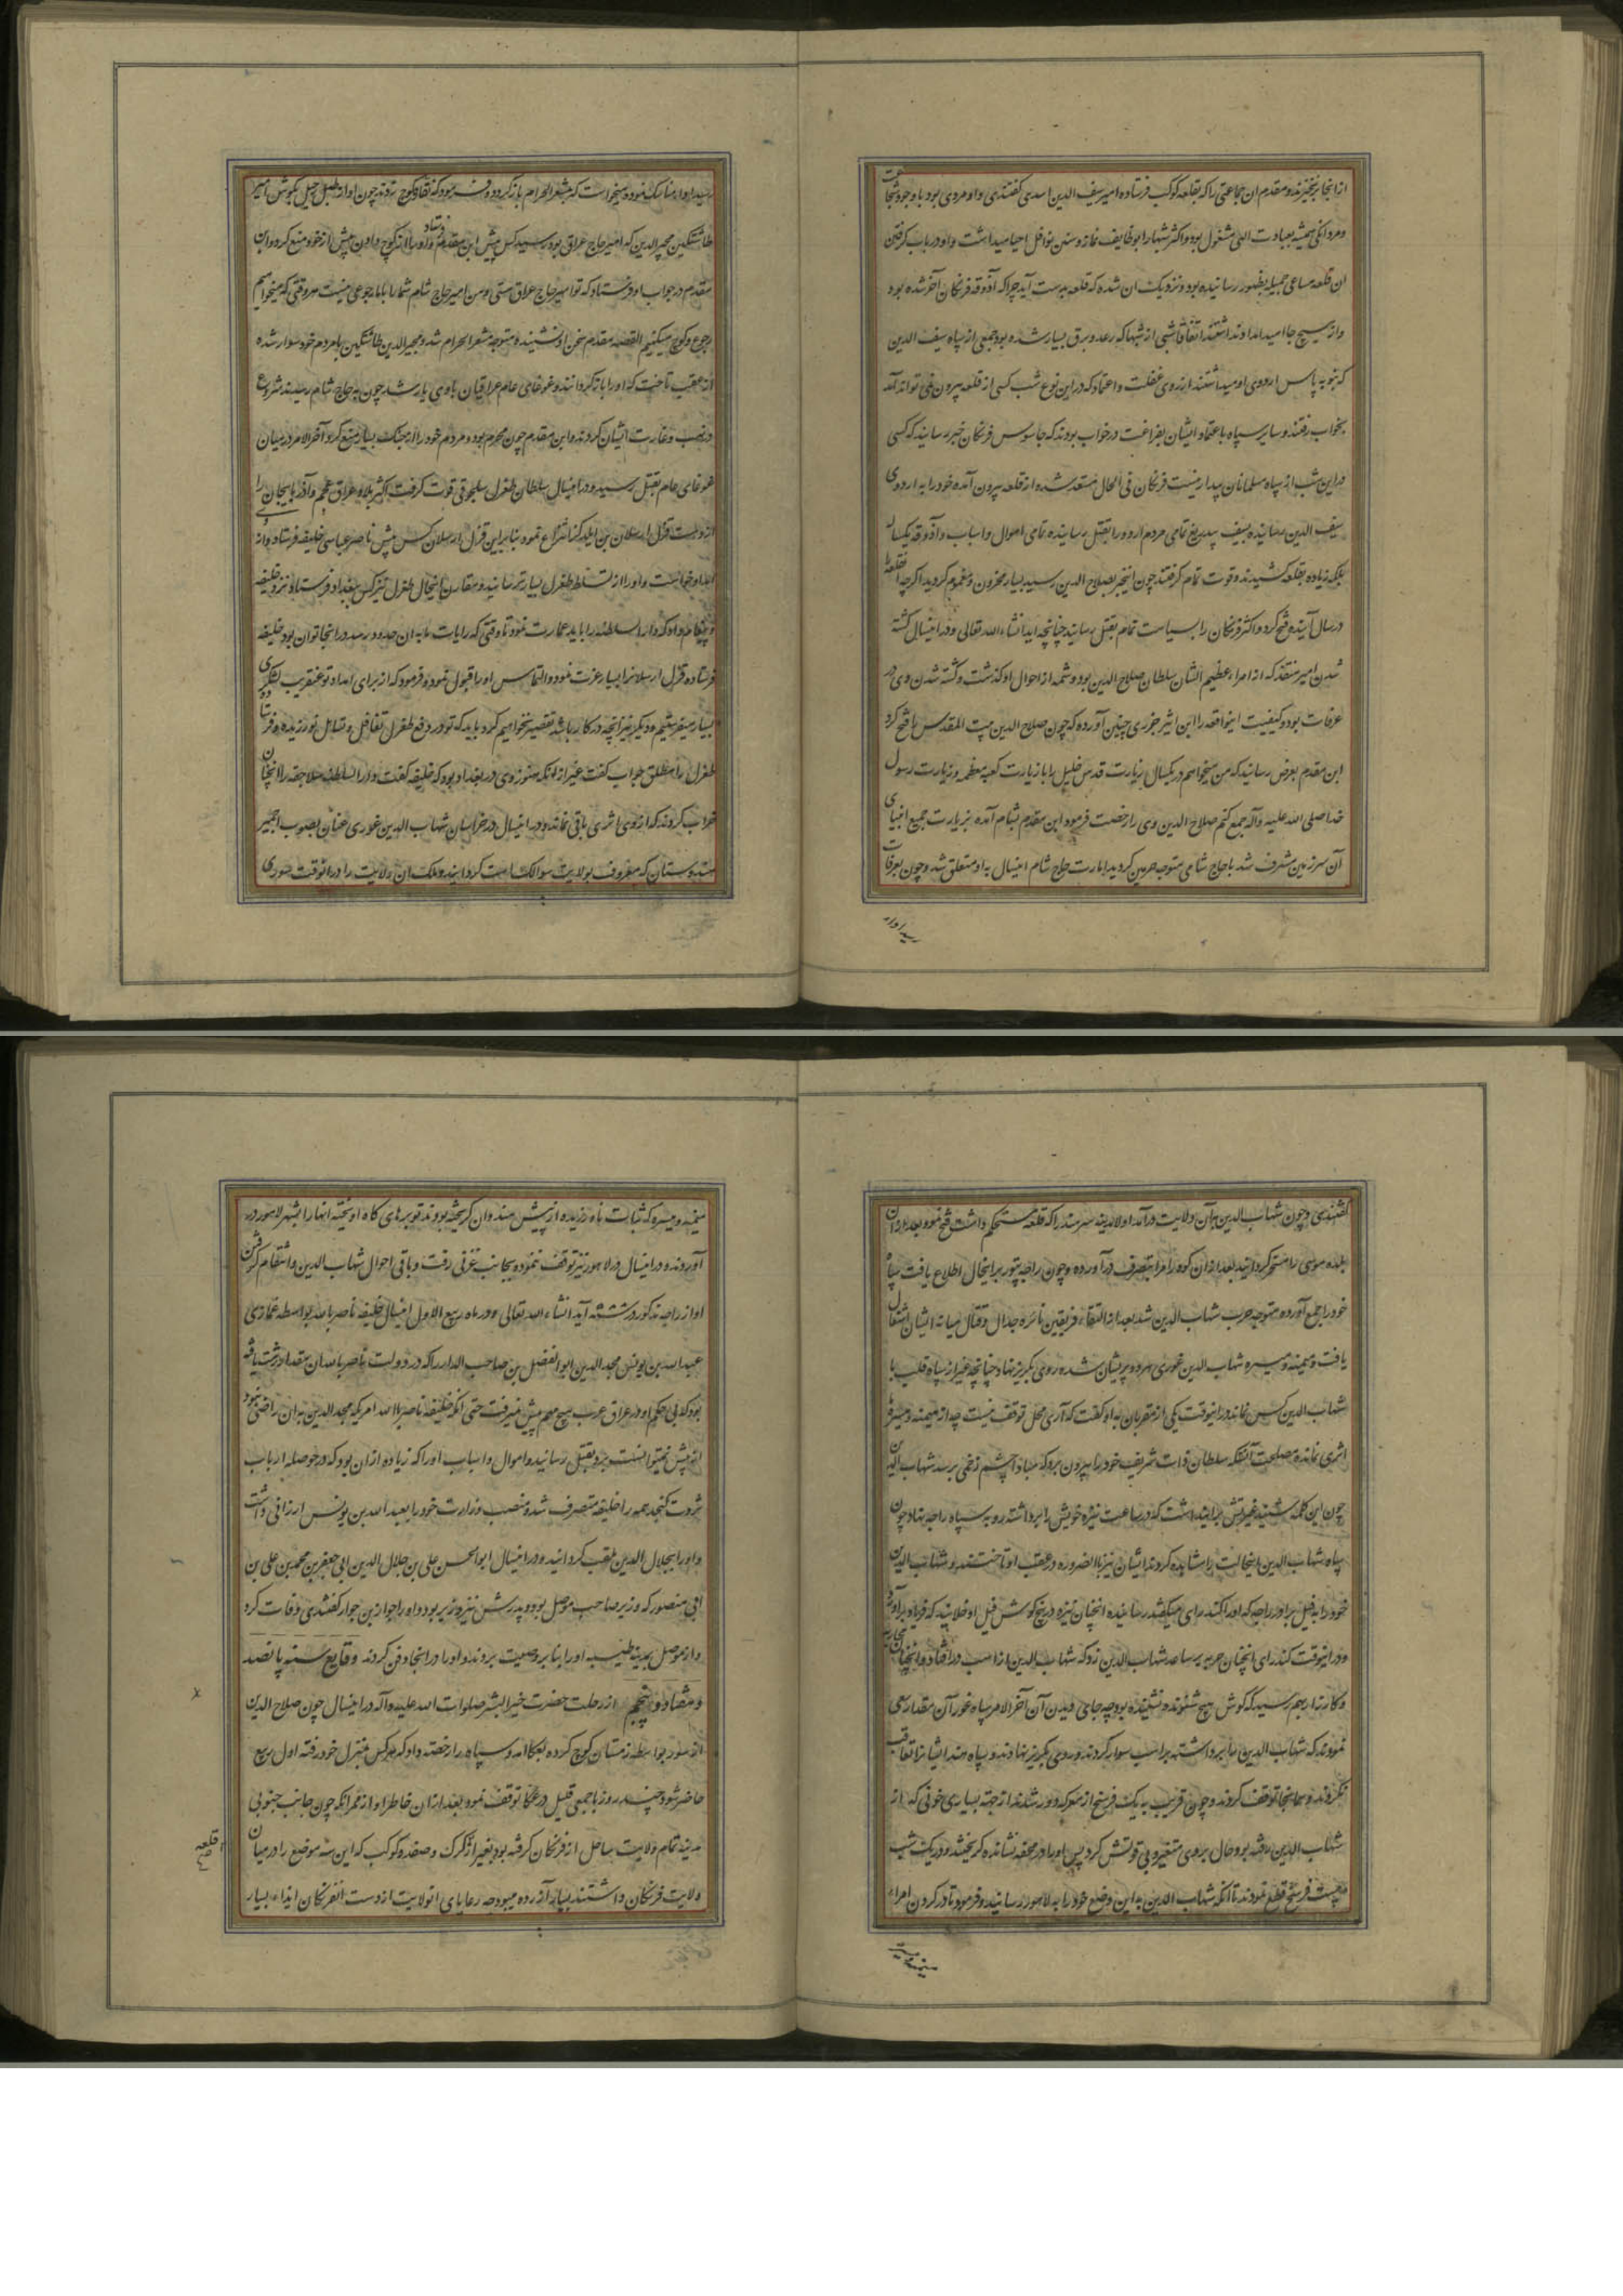 از انجا برنخیزند و مقدم ان جماعتی را که بقلعه کوکب فرستاده امیر سیف الدین اسدی کفتندی و او مردی بود با وجود شجاعت
و مردانکی همیشه بعبادت الهی مشغول بود و اکثر شبها را بوظایف نماز و سنن نوافل احیا میداشت و او در باب کرفتن
ان قلعه مساعی جمیله بظهور رسانیده بود و نزدیک ان شده که قلعه بدست آید چرا که آذوقه فرنکان آخر شده بود
و از هیچ جا امید امداد نداشتند اتفاقا شبی از شبها که رعد و برق بسیار شده بود جمعی از سپاه سیف الدین
که بنوبه پاس اردوی او میداشتند از روی غفلت و اعتماد که در این نوع شب کسی از قلعه بیرون نمی تواند آمد
بخواب رفتند و سایر سپاه باعتماد ایشان بفراغت در خواب بودند که جاسوس فرنکان خبر رسانید که کسی
در این شب از سپاه مسلمانان بیدار نیست فرنکان فی الحال مستعد شده از قلعه بیرون آمده خود را به اردوی
سیف الدین رسانیده بسیف بیدریغ تمامی مردم اردو را بقتل رسانیده تمامی اموال و اسباب و آذوقه یکساله
بلکه زیاده بقلعه کشیدند و قوت تمام کرفتند چون اینخبر بصلاح الدین رسید بسیار محزون و مغموم کردید اکرچه انقلعه را
در سال آینده فتح کرد و اکثر فرنکان را بسیاست تمام بقتل رسانید چنانچه اید انشاء الله تعالی و در اینسال کشته
شدن امیر منقذ که از امراء عظیم الشان سلطان صلاح الدین بود و شمه از احوال او کذشت و کشته شدن وی در
عرفات بود و کیفییت اینواقعه را ابن اثیر جزری چنین آورده که چون صلاح الدین بیت المقدس را فتح کرد
ابن مقدم بعرض رسانید که من میخواهم در یکسال زیارت قدس خلیل را با زیارت کعبه معظمه و زیارت رسول
خدا صلی الله علیه و آله جمع کنم صلاح الدین وی را رخصت فرمود ابن مقدم بشام آمده بزیارت جمیع انبیای
آن سرزمین مشرف شد با حاج شامی متوجه حرمین کردید امارت حاج شام اینسال به او متعلق شد و چون بعرفات
رسید اواد
رسید مناسک نمود و میخواست که بمشعر الحرام باز کردد و فرمود که نقاره کوچ زدند چون اواز طبل رحیل بکوش امیر
طاشتکین مجیر الدین که امیر حاج عراق بود رسید کس پیش ابن مقدم فرستاد و او را از کوچ دادن پیش از خود منع کرد و ابن
مقدم در جواب او فرستاد که تو امیر حاج عراق هستی و من امیر حاج شام شما را بما رجوعی نیست هر وقتی که میخواهیم
رجوع و کوچ میکنیم القصه مقدم سخن او نشنیده متوجه مشعر الحرام شد و مجیر الدین طاشتکین با مردم خود سوار شده
از عقب تاخت که او را باز کردانند و غوغای عام عراقیان با وی یار شد چون به حاج شام رسیدند شروع
در نهب و غارت ایشان کردند و ابن مقدم چون محرم بود و مردم خود را از جنک بسیار منع کرد آخر الامر در میان
غوغای عام بقتل رسید و در اینسال سلطان طغرل سلجوقی قوت کرفت اکثر بلاد عراق عجم و آذربایجان را
از دست قزل ارسلان بن ایلدکز انتزاع نمود بنابراین قزل ارسلان کس پیش ناصر عباسی خلیفه فرستاد و از او
امداد خواست و او را از تسلط طغرل بسیار ترسانید و مقارن اینحال طغرل نیز کس ببغداد فرستاد و نزد خلیفه
پیغام داد که دار السلطنه را باید عمارت نمود تا وقتی که رایات ما به ان حدود رسد در انجا توان بود خلیفه
فرستاده قزل ارسلان را بسیار عزت نمود و التماس او را قبول نمود و فرمود که از برای امداد تو عنقریب لشکری
بسیار میفرستیم و دیکر نیز انچه در کار باشد تقصیر نخواهیم کرد باید که تو در دفع طغرل تغافل و تساهل نورزیده و فرستاده
طغرل را مطلق جواب نکفت غیر از انکه هنوز وی در بغداد بود که خلیفه کفت و دار السلطنه سلاجقه را انچنان
خراب کردند که از وی اثری باقی نماند و در اینسال در خراسان شهاب الدین غوری عنان بصوب اجمیر
هندوستان که معروف بولایت سوالک است کردانید و ملک ان ولایت را در انوقت جنوری
کفتندی و چون شهاب الدین بآن ولایت درآمد اولا مدینه سرهند را که قلعه مستحکم داشت فتح نمود و بعد از ان
بلده موسی را مسخر کردانید بعد از ان کوه رام را بتصرف درآورده و چون راجه پتور بر اینحال اطلاع یافت سپاه
خود را جمع آورده متوجه حرب شهاب الدین شد بعد از التقاء فریقین نائره جدال و قتال میانه ایشان اشتعال
یافت و میمنه و میسره شهاب الدین غوری هر دو پریشان شده روی بکریز نهاد چنانچه غیر از سپاه قلب با
شهاب الدین کس نماند در اینوقت یکی از مقربان به او کفت که آری محل توقف نیست چه از میمنه و میسره
اثری نمانده مصلحت آنستکه سلطان ذات شریف خود را بیرون برد که مبادا چشم زخمی برسد شهاب الدین
چون این کلمه شنید غیرتش بر این داشت که در ساعت نیزه خویش را برداشته رو به سپاه راجه نهاد چون
سپاه شهاب الدین اینحالت را مشاهده کردند ایشان نیز بالضروره در عقب او تاختند و شهاب الدین
خود را به فیل برادر راجه که او را کندرای میکفتند رسانیده انچنان نیزه در بیخ کوش فیل او خلانید که فریاد برآورد
و در اینوقت کندرای انچنان حربه بر ساعد شهاب الدین زد که شهاب الدین از اسب در افتاد و انچنان محاربه
و کارزار بهم رسید که کوش هیچ شنونده نشنیده بود چه جای دیدن آن آخر الامر سپاه غور آن مقدار سعی
نمودند که شهاب الدین را برداشته بر اسب سوار کردند و روی بکریز نهادند و سپاه هند ایشانرا تعاقب
نکردند و همانجا توقف کردند و چون قریب به یک فرسخ از معرکه دور شدند از جهة بسیاری خونی که از
شهاب الدین رفته بود حال بر وی متغیر و بی قوتش کرد پس او را در محفه نشانده کریختند و در یک شب
بیست فرسخ قطع نمودند تا انکه شهاب الدین به این وضع خود را به لاهور رسانید و فرمود تا در کردن امراء
میمنه و میسره
میمنه و میسره که ثبات نا ورزیده از پیش هندوان کریخته بودند توبرهای کاه اویخته انها را بشهر لاهور در
آوردند و در اینسال در لاهور نیز توقف ننموده بجانب غزنی رفت و باقی احوال شهاب الدین و انتقام کرفتن
او از راجه مذکور در سنه آید انشاء الله تعالی و در ماه ربیع الاول اینسال خلیفه ناصر بالله بواسطه غمازی
عبید الله بن یونس مجد الدین ابو الفضل بن صاحب الدار را که در دولت ناصر بالله ان مقدار رشد یافته
بود که بی حکم او در عراق عرب هیچ مهم پیش نمیرفت حتی انکه خلیفه ناصر بالله امریکه مجد الدین به ان راضی نبود
از پیش نمیتوانست برد بقتل رسانید و اموال و اسباب او را که زیاده از ان بود که در حوصله ارباب
ثروت کنجد همه را خلیفه متصرف شد و منصب وزارت خود را بعبید الله بن یونس ارزانی داشت
و او را بجلال الدین ملقب کردانید و در اینسال ابو الحسن علی بن جلال الدین ابی جعفر بن محمد بن علی بن
ابی منصور که وزیر صاحب موصل بود و پدرش نیز وزیر بود و او را جواد بن جواد کفتندی وفات کرد
و از موصل بمدینه طیبه او را بنا بر وصیت بردند و او را در انجا دفن کردند وقایع سنه پانصد
و هفتاد و پنجم از رحلت حضرت خیر البشر صلوات الله علیه و آله در اینسال چون صلاح الدین
از صور بواسطه زمستان کوچ کرده بعکا امد و سپاه را رخصت داد که هر کس بمنزل خود رفته اول ربیع
حاضر شود و چند روز با جمعی قلیل در عکا توقف نمود بعد از ان خاطر او از ممر انکه چون جانب جنوبی
مدینه تمام ولایت ساحل از فرنکان کرفته بود بغیر از کرک و صفد و کوکب که این سه موضع را در میان
ولایت فرنکان داشتند بسیار آزرده میبود چه رعایای انولایت از دست انفرنکان ایذاء بسیار
قلعه